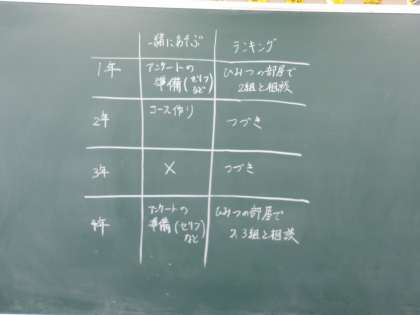 一緒にあそぶ ランキング
1年 アンケートの ひみつの部屋で
準備(セリフ 2組と相談
など)
2年 コース作り つづき
3年 × つづき
4年 アンケートの ひみつの部屋で
準備(セリフ 2,3組と相談
など)